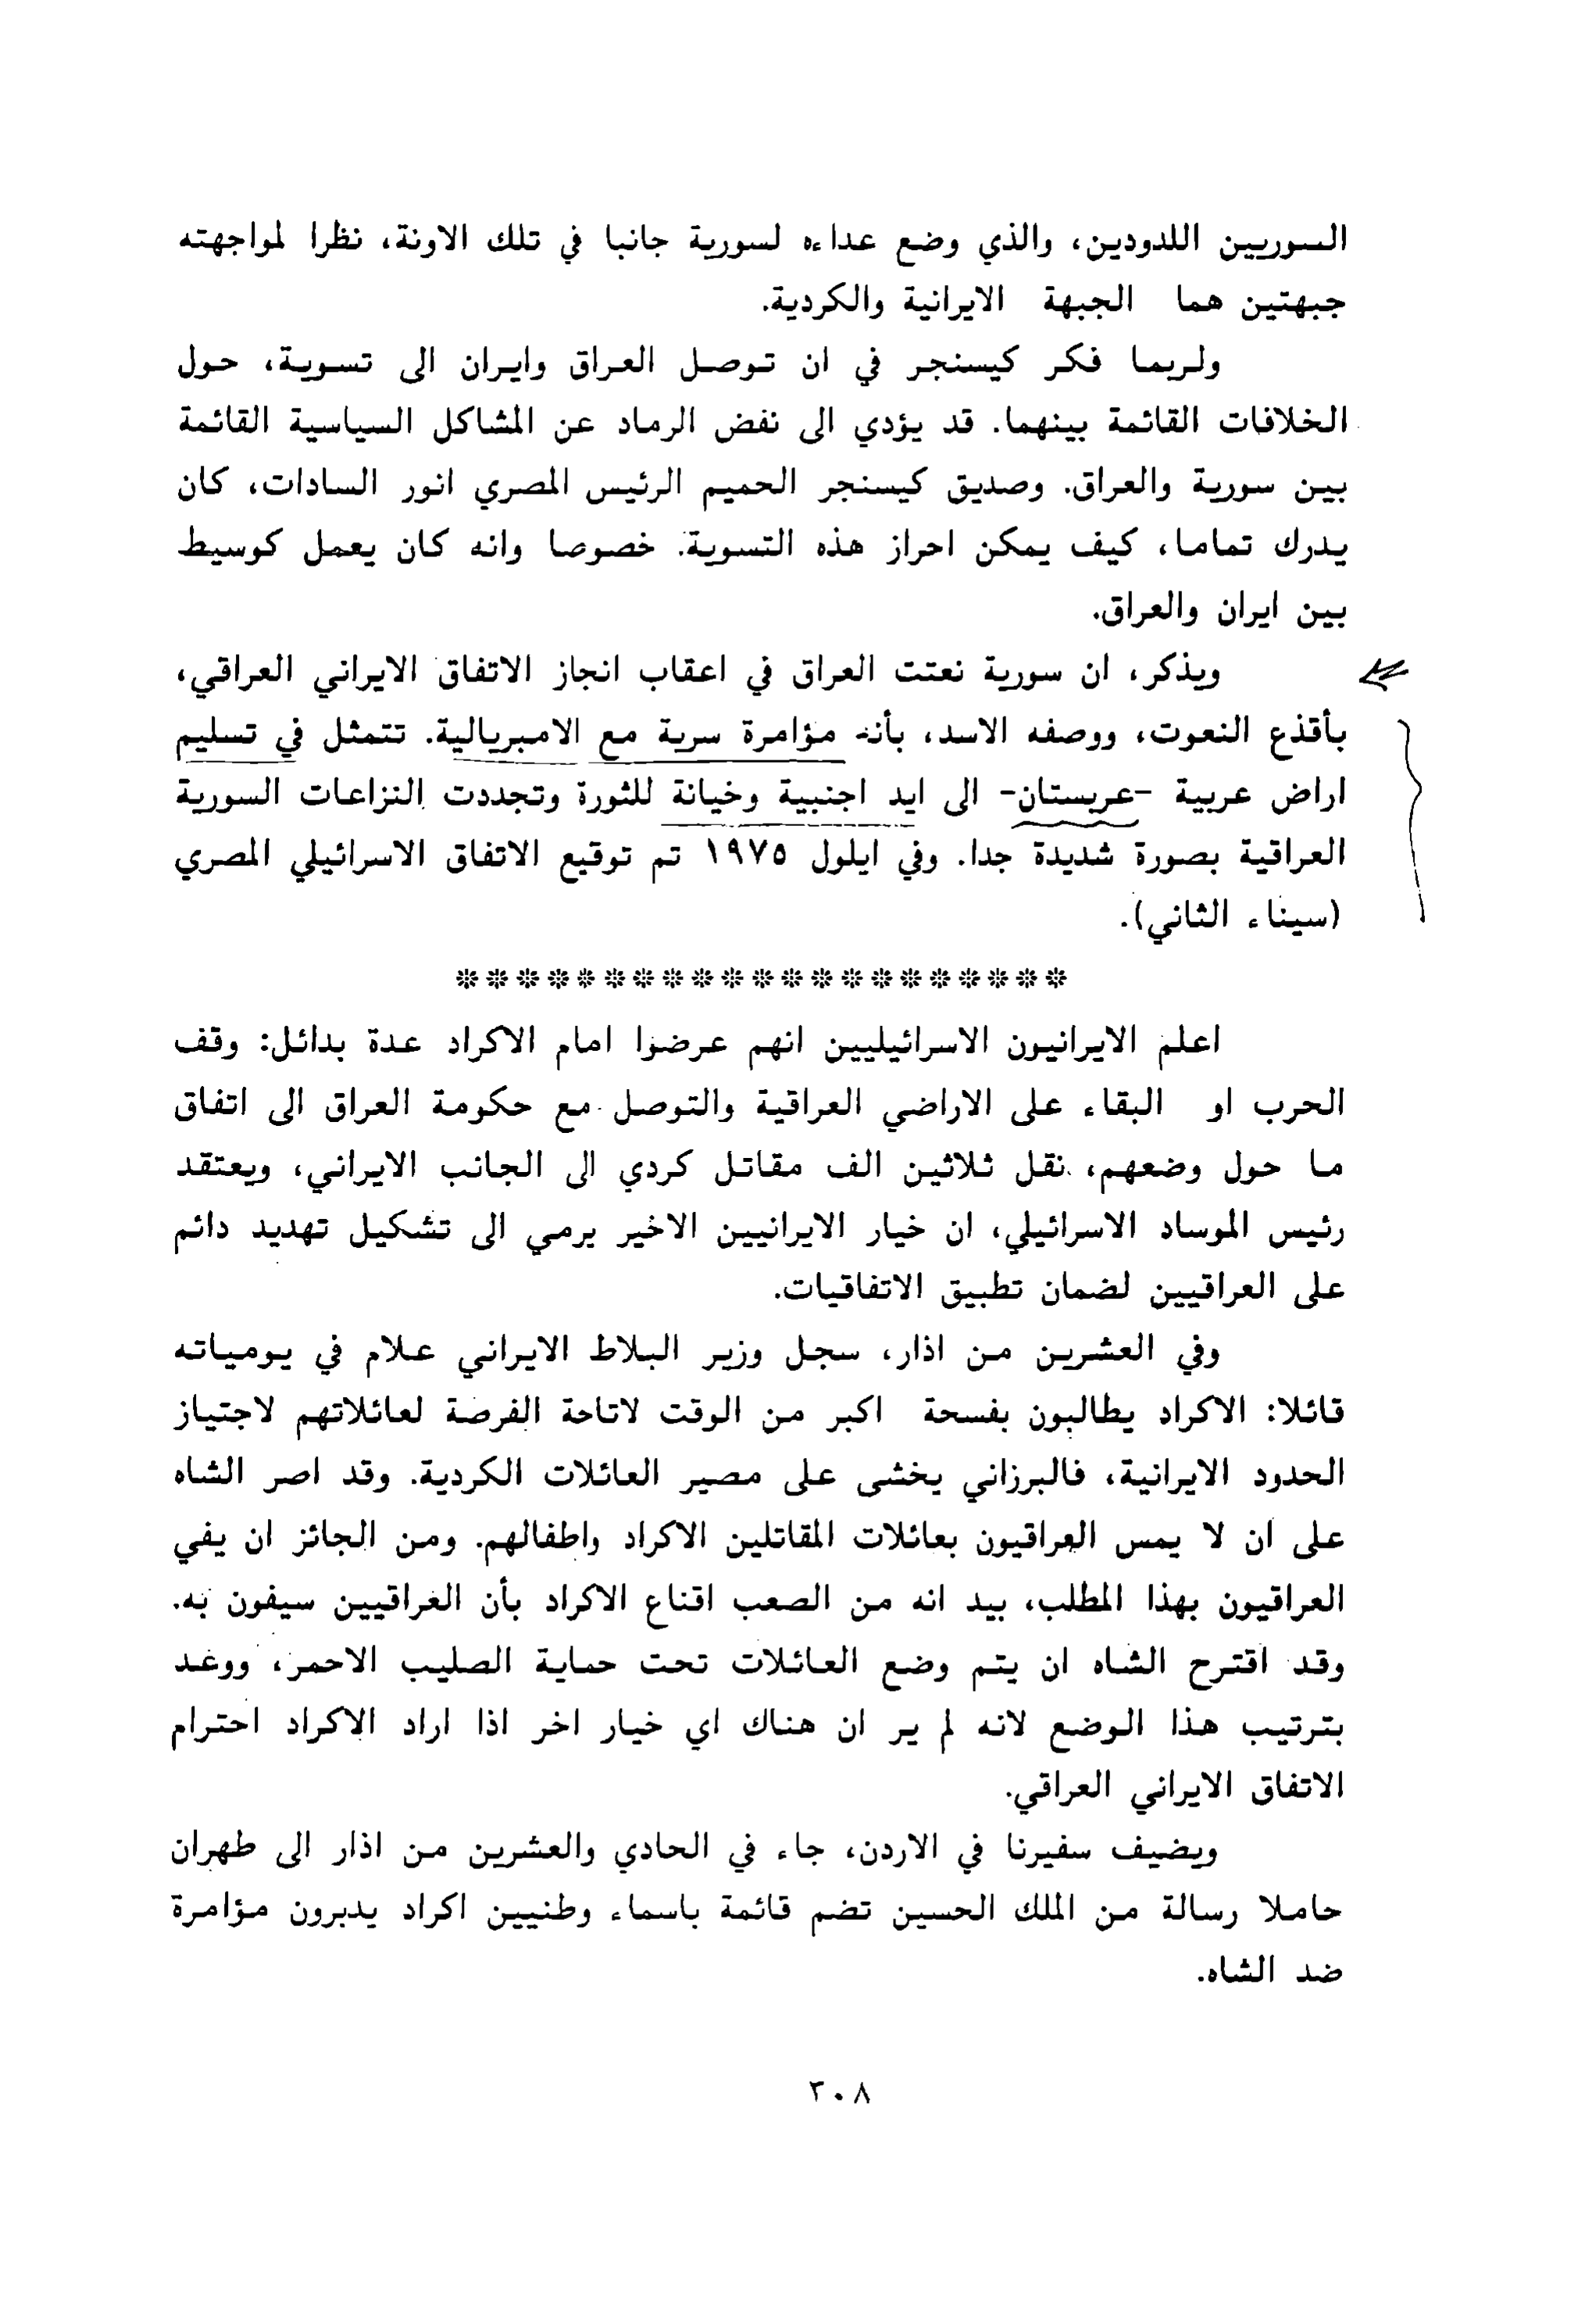 السوريين اللدودين، والذي وضع عداءه لسورية جانبا في تلك الاونة، نظرا لمواجهته
جبهتين هما الجبهة الايرانية والكردية.
ولربما فكر كيسنجر في ان توصل العراق وايران الى تسوية، حول
الخلافات القائمة بينهما. قد يؤدي الى نفض الرماد عن المشاكل السياسية القائمة
بين سورية والعراق. وصديق كيسنجر الحميم الرئيس المصري انور السادات، كان
يدرك تماما، كيف يمكن احراز هذه التسوية. خصوصا وانه كان يعمل كوسيط
بين ايران والعراق.
ويذكر، ان سورية نعتت العراق في اعقاب انجاز الاتفاق الايراني العراقي،
بأقذع النعوت، ووصفه الاسد، بأنه مؤامرة سرية مع الامبريالية. تتمثل في تسليم
اراض عربية -عربستان- الى ايد اجنبية وخيانة للثورة وتجددت النزاعات السورية
العراقية بصورة شديدة جدا. وفي ايلول ١٩٧٥ تم توقيع الاتفاق الاسرائيلي المصري
(سيناء الثاني).
* * * * * * * * * * * * * * * * * * * * *
اعلم الايرانيون الاسرائيليين انهم عرضوا امام الاكراد عدة بدائل: وقف
الحرب او البقاء على الاراضي العراقية والتوصل مع حكومة العراق الى اتفاق
ما حول وضعهم، نقل ثلاثين الف مقاتل كردي الى الجانب الايراني، ويعتقد
رئيس الموساد الاسرائيلي، ان خيار الايرانيين الاخير يرمي الى تشكيل تهديد دائم
على العراقيين لضمان تطبيق الاتفاقيات.
وفي العشرين من اذار، سجل وزير البلاط الايراني علام في يومياته
قائلا: الاكراد يطالبون بفسحة اكبر من الوقت لاتاحة الفرصة لعائلاتهم لاجتياز
الحدود الايرانية، فالبرزاني يخشى على مصير العائلات الكردية. وقد اصر الشاه
على ان لا يمس العراقيون بعائلات المقاتلين الاكراد واطفالهم. ومن الجائز ان يفي
العراقيون بهذا المطلب، بيد انه من الصعب اقناع الاكراد بأن العراقيين سيفون به.
وقد اقترح الشاه ان يتم وضع العائلات تحت حماية الصليب الاحمر، ووعد
بترتيب هذا الوضع لانه لم ير ان هناك اي خيار اخر اذا اراد الاكراد احترام
الاتفاق الايراني العراقي.
ويضيف سفيرنا في الاردن، جاء في الحادي والعشرين من اذار الى طهران
حاملا رسالة من الملك الحسين تضم قائمة باسماء وطنيين اكراد يدبرون مؤامرة
ضد الشاه.
٣٠٨